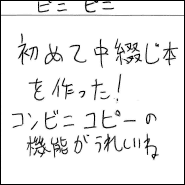 ビニ ビニ
初めて中綴じ本
を作った!
コンビニコピーの
機能がうれしいね